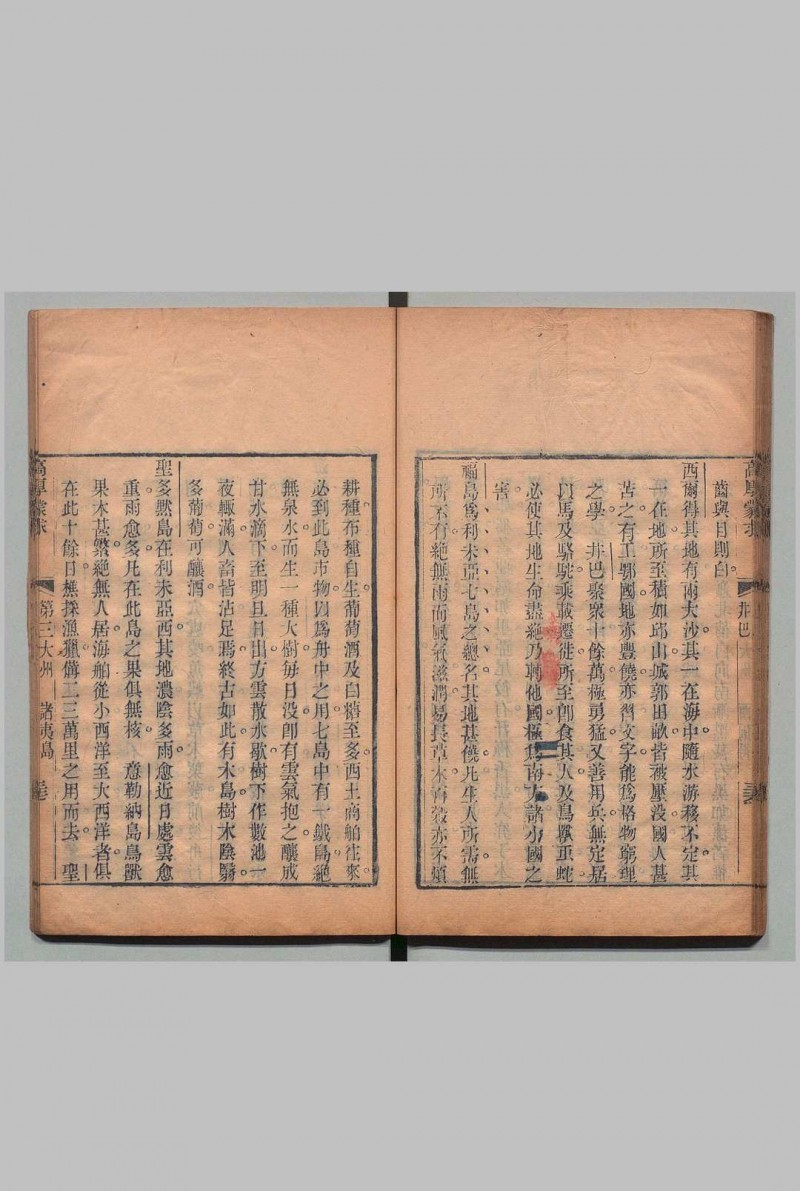 高厚蒙求
井巴
齒與目則白
西爾得其地有兩大沙其一在海中隨水游移不定其
一在地所至積如邱山城郭田畝皆被壓沒國人甚
苦之有工鄂國地亦豐饒亦習文字能爲格物窮理
之學 井巴聚衆十餘萬極勇猛又善用兵無定居
以馬及駱駝乘載遷徙所至卽食其人及鳥獸虫蛇
必使其地生命盡絕乃轉他國極爲南方諸小國之
害
福島爲利未亞七島之總名其地甚饒凡生人所需無
所不有絕無雨而風氣滋潤易長草木百穀亦不煩
耕種布種自生葡萄酒及白糖至多西土商舶往來
必到此島市物以爲舟中之用七島中有一鐵島絕
無泉水而生一種大樹每日沒卽有雲氣抱之釀成
甘水滴下至明旦日出方雲散水歇樹下作數池一
夜輒滿人畜皆沾足焉終古如此有木島樹木陰翳
多葡萄可釀酒
聖多默島在利未亞西其地濃陰多雨愈近日處雲愈
重雨愈多凡在此島之果俱無核 意勒納島鳥獸
果木甚繁絕無人居海舶從小西洋至大西洋者俱
在此十餘日樵採漁獵備二三萬里之用而去 聖
高厚蒙求
第三大州 諸夷島